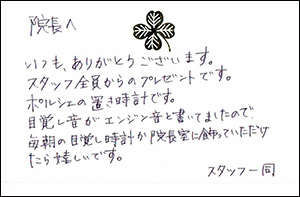 院長へ
いつも、ありがとうございます。
スタッフ全員からのプレゼントです。
ポルシェの置き時計です。
目覚し音がエンジン音と書いてましたので
毎朝の目覚し時計か院長室に飾っていただけ
たら嬉しいです。
スタッフ一同